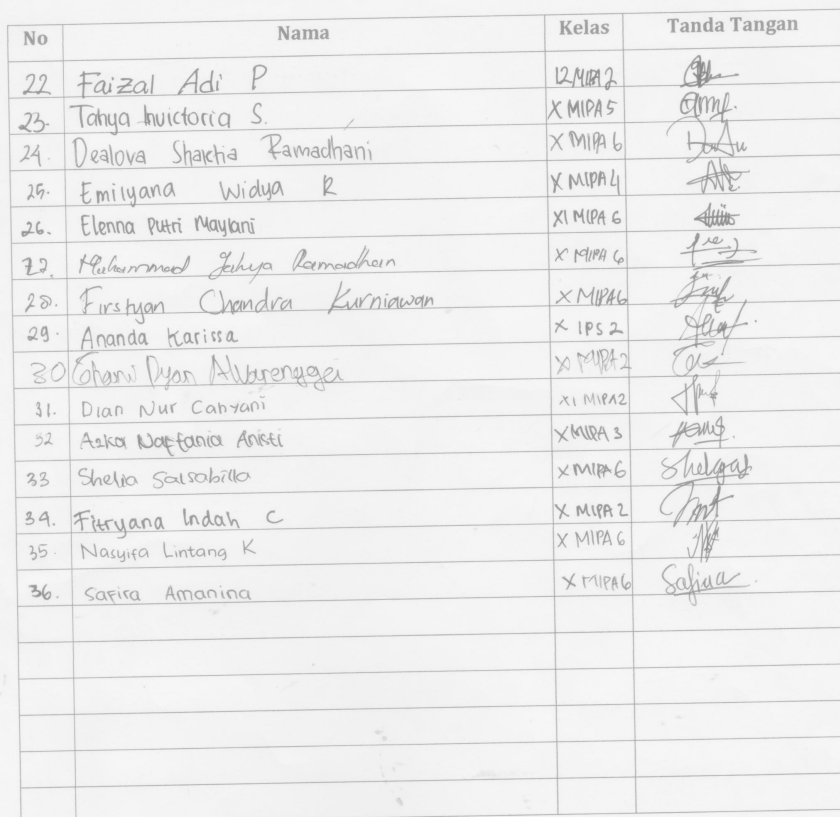 No Nama Kelas Tanda Tangan
22 Faizal Adi P 12 MIPA 2
23. Tahya Invictoria S. X MIPA 5
24. Dealova Shakhia Ramadhani X MIPA 6
25. Emilyana Widya R X MIPA 4
26. Elenna Putri Maylani XI MIPA 6
27. Muhammad Yahya Ramadhan X MIPA 6
28. Firstyan Chandra Kurniawan X MIPA 6
29. Ananda Karissa X IPS 2
30 Ghani Dyan XI MIPA 2
31. Dian Nur Cahyani XI MIPA 2
32 Azka Naftania Anisti X MIPA 3
33 Shelia Salsabilla X MIPA 6
34. Fitryana Indah C X MIPA 2
35. Nasyifa Lintang K X MIPA 6
36. Safira Amanina X MIPA 6 Safira